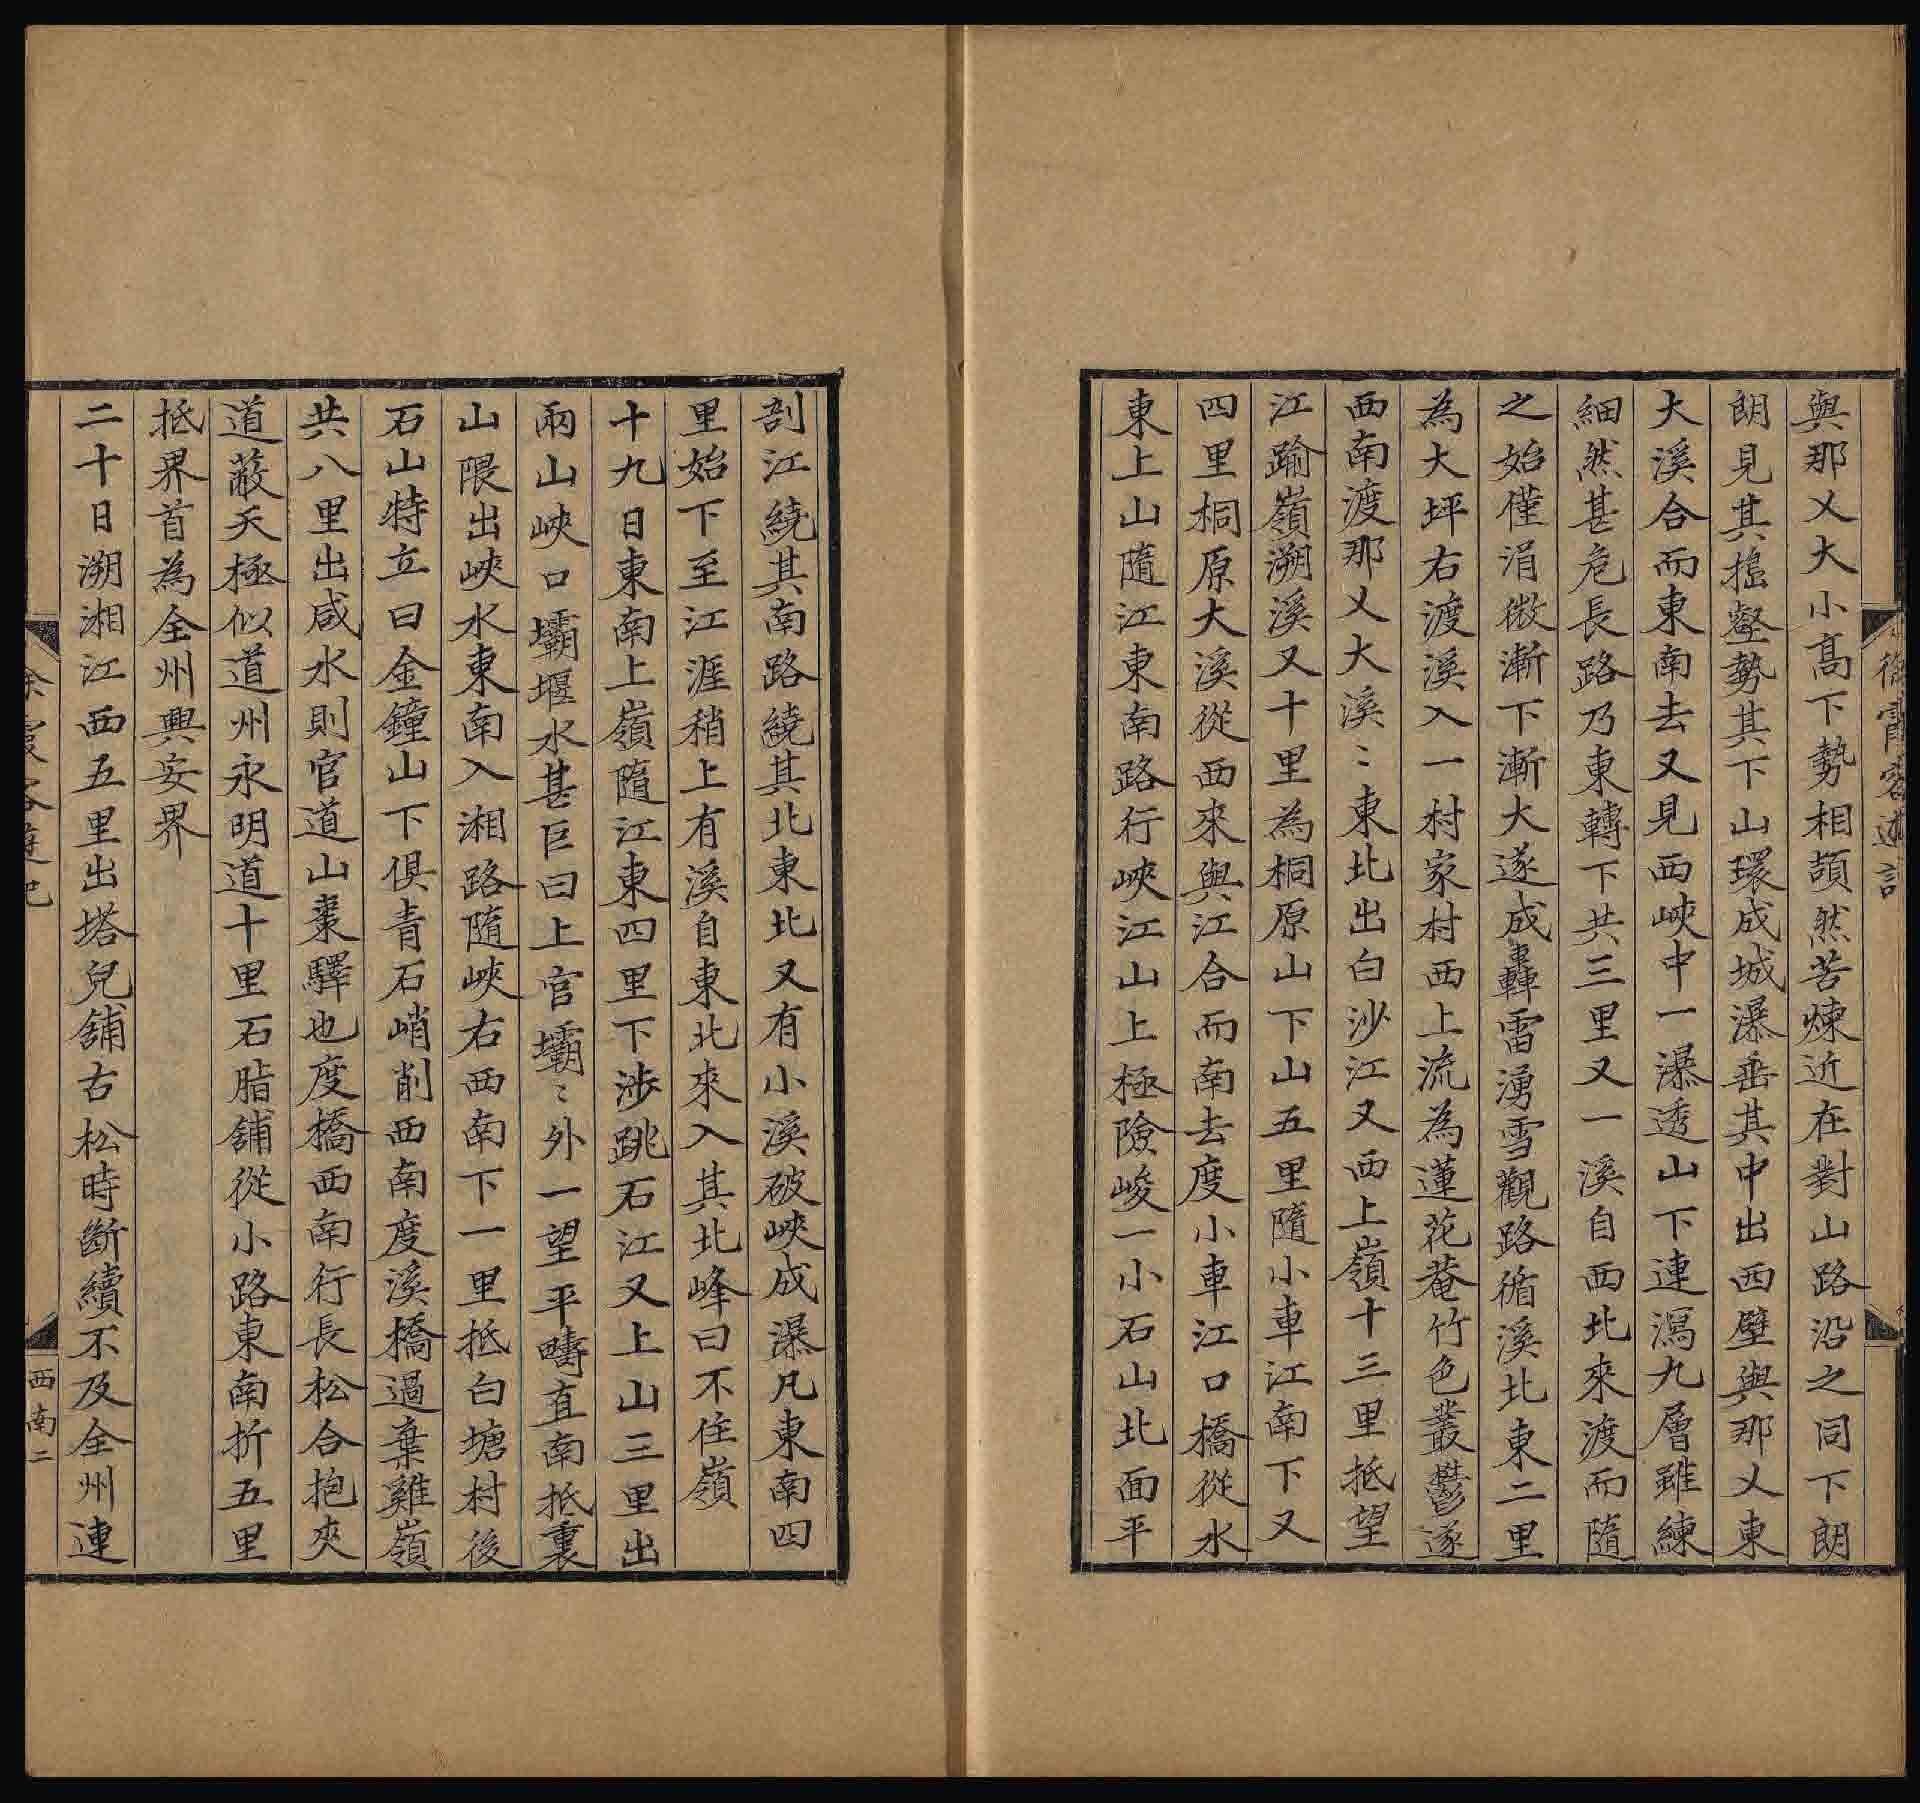 徐霞客遊記
與那乂大小高下勢相頡然苦煉近在對山路沿之同下朗
朗見其搖壑勢其下山環成城瀑垂其中出西壁與那乂東
大溪合而東南去又見西峽中一瀑透山下連瀉九層雖練
細然甚危長路乃東轉下共三里又一溪自西北來渡而隨
之始僅涓微漸下漸大遂成轟雷湧雪觀路循溪北東二里
為大坪右渡溪入一村家村西上流為蓮花菴竹色叢鬱遂
西南渡那乂大溪〻東北出白沙江又西上嶺十三里抵望
江踰嶺溯溪又十里為桐原山下山五里隨小車江南下又
四里桐原大溪從西來與江合而南去度小車江口橋從水
東上山隨江東南路行峽江山上極險峻一小石山北面平
剖江繞其南路繞其北東北又有小溪破峽成瀑凡東南四
里始下至江涯稍上有溪自東北來入其北峰曰不住嶺
十九日東南上嶺隨江東四里下涉跳石江又上山三里出
兩山峽口壩堰水甚巨曰上官壩〻外一望平疇直南抵裏
山隈出峽水東南入湘路隨峽右西南下一里抵白塘村後
石山特立曰金鐘山下俱青石峭削西南度溪橋過棄雞嶺
共八里出咸水則官道山棗驛也度橋西南行長松合抱夾
道蔽天極似道州永明道十里石脂舖從小路東南折五里
抵界首為全州興安界
二十日溯湘江西五里出塔兒舖古松時斷續不及全州連
徐霞客遊記
西南二